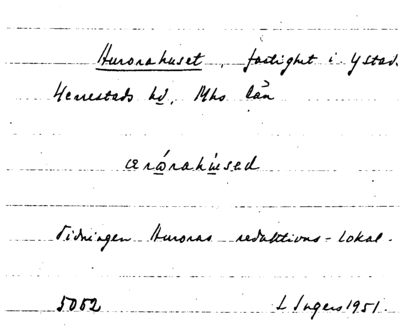 Aurorahuset, fastighet i Ystad.
Herrestads hd, Mhs län
ærω̇rahu̇sed
Tidningen Auroras redaktions-lokal.
5062 I Ingers 1951.